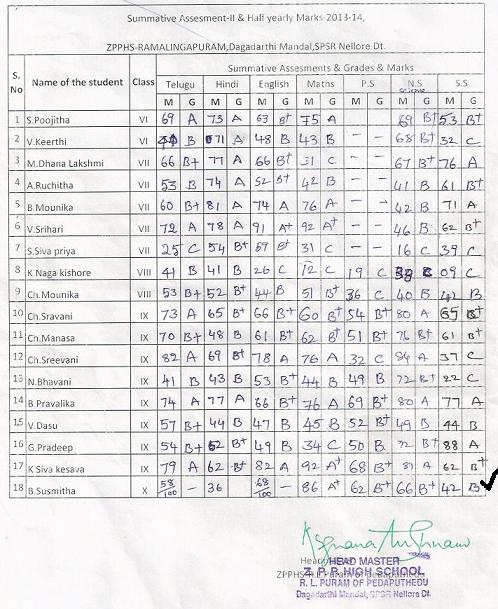 Summative Assesment-II & Half yearly Marks-2013-14,
ZPPHS-RAMALINGAPURAM,Dagadarthi Mandal,SPSR Nellore Dt.
S. No Name of the student Class Summative Assesments & Grades & Marks
Telugu Hindi English Maths P.S N.S Science S.S
M G M G M G M G M G M G M G
1 S.Poojitha VI 69 A 73 A 63 B+ 75 A 69 B+ 53 B+
2 V.Keerthi VI B 71 A 48 B 43 B - - 68 B+ 32 C
3 M.Dhana Lakshmi VII 66 B+ 77 A 66 B+ 31 C - - 67 B+ 76 A
4 A.Ruchitha VII 53 B 74 A 52 B+ 42 B - - 41 B 61 B+
5 B.Mounika VII 60 B+ 81 A 74 A 76 A - - 42 B 71 A
6 V.Srihari VII 72 A 78 A 91 A+ 92 A+ - - 46 B 62 B+
7 S.Siva priya VII 25 C 54 B+ 57 B+ 31 C - - 16 C 39 C
8 K.Naga kishore VIII 41 B 41 B 26 C 12 C 19 C 09 C
9 Ch.Mounika VIII 53 B+ 52 B+ 44 B 51 B+ 36 C 40 B 42 B
10 Ch.Sravani IX 73 A 65 B+ 66 B+ 60 B+ 54 B+ 80 A 65 B+
11 Ch.Manasa IX 70 B+ 48 B 61 B+ 62 B+ 51 B+ 76 B+ 61 B+
12 Ch.Sreevani IX 82 A 69 B+ 78 A 76 A 32 C 84 A 37 C
13 N.Bhavani IX 41 B 43 B 53 B+ 44 B 49 B 72 B+ 22 C
14 B.Pravalika IX 74 A 77 A 66 B+ 76 A 69 B+ 80 A 77 A
15 V.Dasu IX 57 B+ 44 B 47 B 45 B 52 B+ 49 B 44 B
16 G.Pradeep IX 54 B+ 62 B+ 49 B 34 C 50 B 72 B+ 88 A
17 K Siva kesava IX 79 A 62 B+ 82 A 92 A+ 68 B+ 81 A 62 B+
18 B.Susmitha X 58/100 - 36 68/100 - 86 A+ 62 B+ 66 B+ 42 B
HEAD MASTER
Z. P. P. HIGH SCHOOL
R. L. PURAM OF PEDAPUTHEDU
Dagadarthi Mandal, SPSR Nellore Dt.